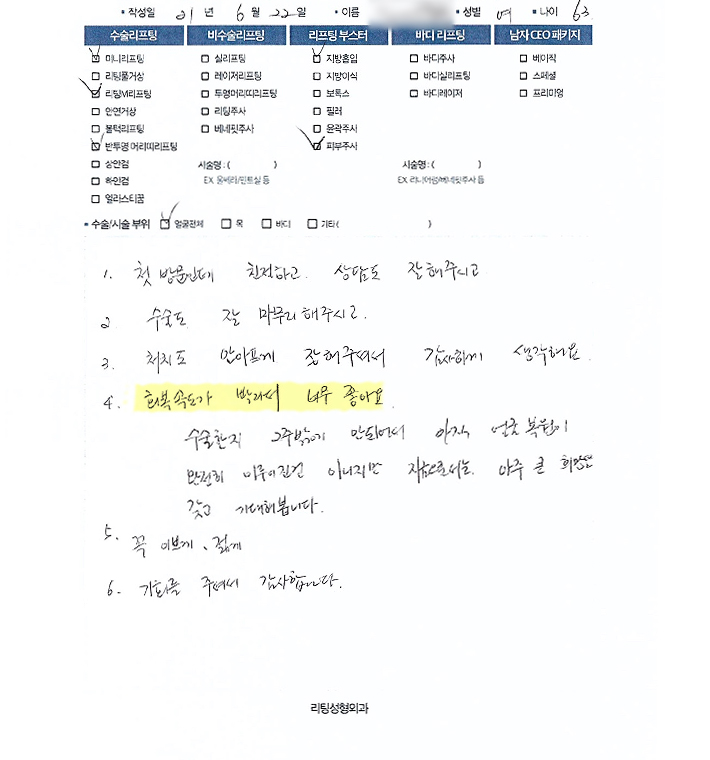 ▪ 작성일 21 년 6 월 22 일 ▪ 이름 ▪ 성별 여 ▪ 나이 63
수술리프팅 비수술리프팅 리프팅 부스터 바디 리프팅 남자 CEO 패키지
미니리프팅 실리프팅 지방흡입 바디주사 베이직
리팅풀거상 레이저리프팅 지방이식 바디실리프팅 스페셜
리팅M리프팅 투명머리띠리프팅 보톡스 바디레이저 프리미엄
안면거상 리팅주사 필러
볼턱리프팅 베네핏주사 윤곽주사
반투명 머리띠리프팅 피부주사
상안검 시술명 : ( ) 시술명 : ( )
하안검 EX. 울쎄라/민트실 등 EX. 리니어펌/베네핏주사 등
엘라스티꿈
▪ 수술/시술 부위 얼굴전체 목 바디 기타 ( )
1. 첫 방문인데 친절하고. 상담도 잘해주시고
2 수술도 잘 마무리해주시고.
3. 처치도 안아프게 잘해주셔서 감사하게 생각해요.
4. 회복속도가 빨라서 너무 좋아요.
수술한지 2주밖에 안되어서 아직 얼굴 복원이
완전히 이루어진건 아니지만 지금으로서는. 아주 큰 희망을
갖고 기대해봅니다.
5. 꼭 이쁘게, 젊게
6. 기회를 주셔서 감사합니다.
리팅성형외과